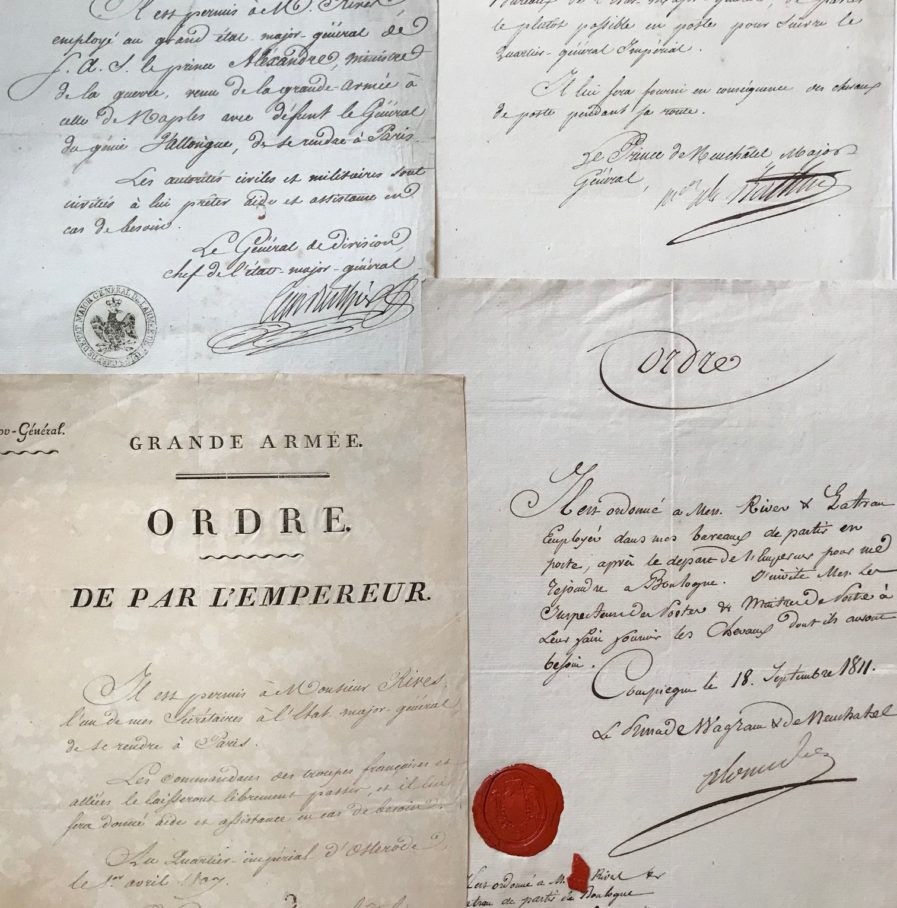 Il est permis à M. Rives
employé au grand état major-général de
S. A. S. le prince Alexandre, ministre
de la guerre, venu de la grande-armée à
celle de Naples avec défunt le Général
du génie Vallongue, de se rendre à Paris.
Les autorités civiles et militaires sont
invitées à lui prêter aide et assistance en
cas de besoin.
Le Général de division,
chef de l'état-major-général
le plutôt possible en poste pour suivre le
Quartier-général Impérial.
Il lui sera fourni en conséquence des chevaux
de poste pendant sa route.
Le Prince de Neuchâtel Major
Général,
ou-Général.
GRANDE ARMÉE.
ORDRE.
DE PAR L'EMPEREUR.
Il est permis à Monsieur Rives,
l'un de mes Secrétaires à l'Etat major-général
de se rendre à Paris.
Les commandans des troupes françaises et
alliées le laisseront librement passer, et il lui
sera donné aide et assistance en cas de besoin.
Au Quartier-impérial d'Osterode,
le 1er avril 1807.
Ordre
Il est ordonné a Mess. Rives &
Employés dans mes bureaux de partir en
poste, après le départ de l'Empereur pour me
rejoindre a Boulogne. J'invite Mes. Les
Inspecteurs des Postes & Maitres de Poste à
Leur faire fournir les Chevaux dont ils auront
besoin.
Compiegne le 18. Septembre 1811.
Le Prince de Wagram & de Neuchatel
ordonné a Rives &
de partir de Boulogne